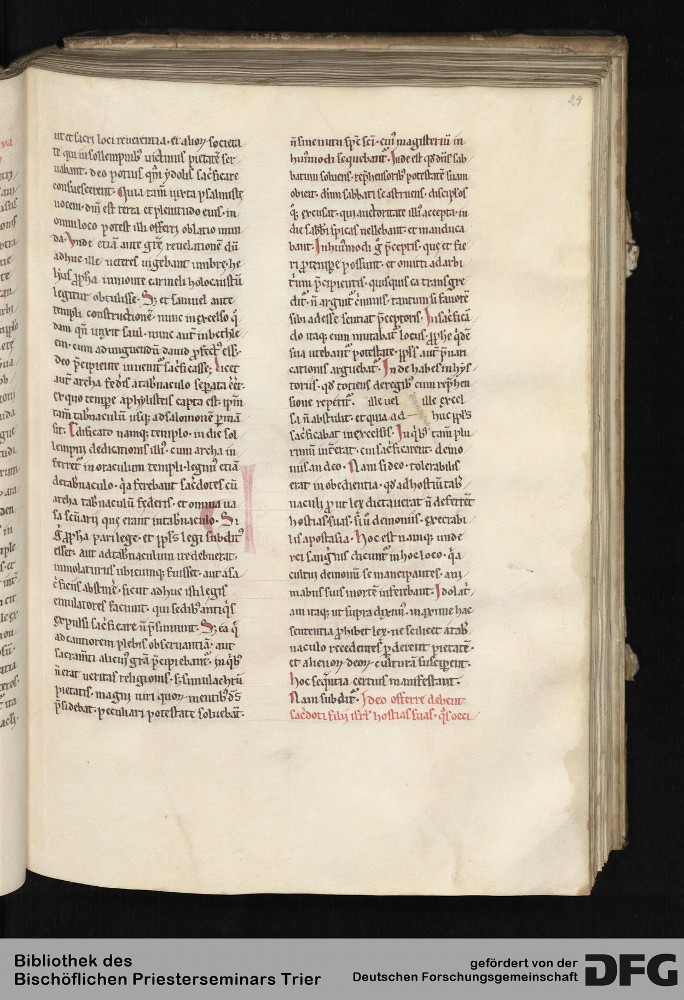 29
ut et sacri loci reuerentia. et alioꝝ societa
te qui in sollempnibꝰ uictimis pietate ser
uabant. deo potius qm̄ ydolis sac̄ficare
consuescerent. Quia tam̄ iuxta psalmistę
uocem. dm̄ est terra et plenitudo eius. in
omni loco potest illi offerri oblatio mun
da. Vnde etiā ante gr̄ę reuelationē dū
adhuc ille ueteres uigebant umbrę. he
lyas ꝓpha in monte carmeli holocaustū
legitur obtulisse. Sꝫ et samuel ante
templi constructionē. nunc in excelso q̄
dam qn̄ unxit saul. nunc aut̄ in bethle
em. cum ad unguendū dauid ꝓfectꝰ esset.
deo p̄cipiente inuenit̄ sac̄ficasse; Licet
aut̄ archa fed̄is a tab̄naculo sep̄ata eēt.
ex quo tempore a phylisteis capta est. ipm̄
tam̄ tab̄naculū usqꝫ ad salomonē p̄mā
sit. Edificato namqꝫ templo. in die sol
lempni dedicationis illiꝰ. cum archa in
ferretᷣ in oraculum templi. legimꝰ etiā
de tab̄naculo. q̄a ferebant sac̄dotes cū
archa tab̄naculū fęderis. et omnia ua
sa sc̄uarii que erant in tab̄naculo. Si
ḡ ꝓpha pari lege. et ppl̄s legi subditꝰ
esset. aut ad tab̄naculum ire debuerat.
immolaturus ubicumqꝫ fuisset. aut a sa
c̄ficiis abstinē. sicut adhuc isti legis
emulatores faciunt. qui sedibꝰ antiq̄s
expulsi sac̄ficare n̄ p̄sumunt. Sꝫ ea q̄
ad cautiorem plebis obseruantiā. aut
sacram̄ti alicuiꝰ gr̄a p̄cipiebantᷣ. in qͥbꝰ
n̄ erat ueritas religionis. sꝫ simulachrū
pietatis. magni uiri quoꝝ mentibꝰ ds̄
p̄sidebat. peculiari potestate soluebant.
n̄ sine nutu sp̄c sc̄i. cuiꝰ magisteriū in
huiꝰmodi sequebantᷣ. Inde est qd̄ dn̄s sab
batum soluens. rep̄hensoribꝰ potestatē suam
obiecit. dn̄m sabbati se astruens. discipl̄os
qꝫ excusat. qui auctoritate illiꝰ accepta. in
die sabb̄i spicas uellebant. et manduca
bant. In huiꝰmodi ḡ p̄ceptis. quę et fie
ri ꝓ tempore possunt. et omitti ad arbi
triūm p̄cipientis. quisquis ea transgre
ditᷣ. n̄ arguitᷣ criminis. tantum si fauorē
sibi adesse sentiat p̄ceptoris. In sac̄ficiā
do itaqꝫ cum mutabatᷣ locus. ꝓphe qͥdē
sua utebantᷣ potestate. ppl̄s aut̄ p̄uari
cationis arguebatᷣ. Inde habes in hys
toriis. qd̄ tociens de regibꝰ cum rep̄hen
sione repetitᷣ. ille uel ille excel
sa n̄ abstulit. et quia ad huc ppl̄s
sac̄ficabat in excelsis. In qͥbꝰ tam̄ plu
rimū int̄erat. cui sac̄ficarent. demo
niis an deo. Nam si deo. tolerabilis
erat inobedientia. qd̄ ad hostiū tab̄
naculi ꝓut lex dictauerat n̄ deferrēt
hostias suas. si ū demoniis. execrabi
lis apostasia. Hoc est namqꝫ unde
rei sanguīs dicunt̄ in hoc loco. q̄a
cultui demonū se mancipantes. ani
mabus suis mortē inferebant. Idolat̄
am itaqꝫ ut supra diximꝰ. maxime hac
sententia ꝓhibet lex. ne scilicet a tab̄
naculo recedentes ꝑderent pietatē.
et alienoꝝ deoꝝ culturā susciperent.
hoc seq̄ntia certius manifestant.
Nam subditᷣ. Ideo offerre debent
sac̄doti filii isrl̄ hostias suas. qͣs occi
Bibliothek des
Bischöflichen Priesterseminars Trier
gefördert von der
Deutschen Forschungsgemeinschaft
DFG